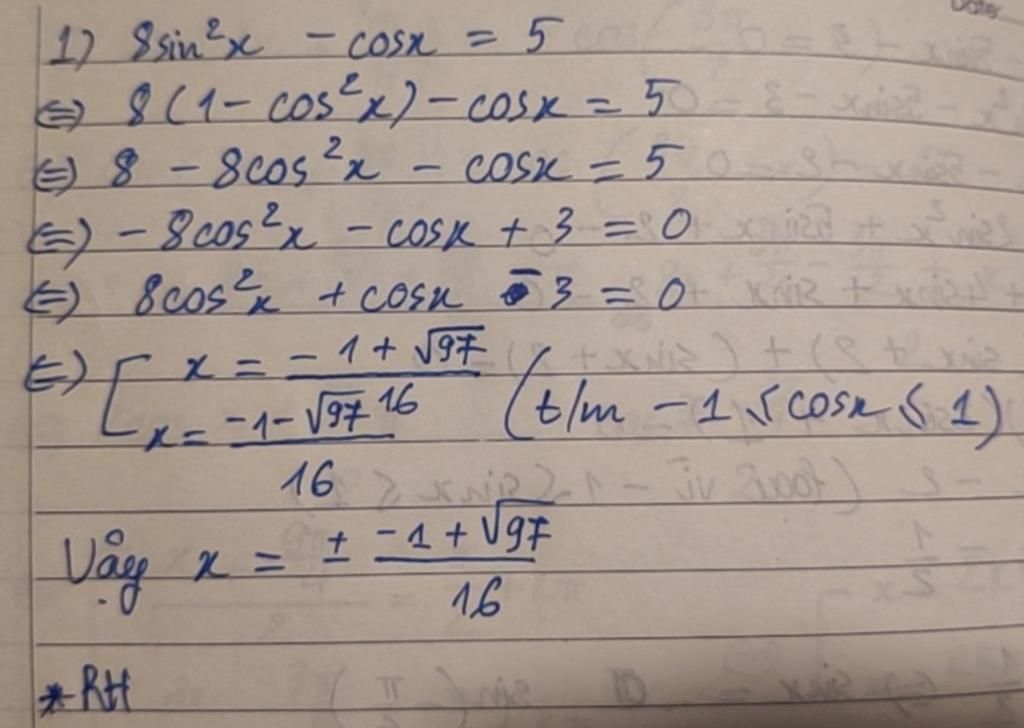 1) 8sin²x - cosx = 5
⇔ 8(1 - cos²x) - cosx = 5
⇔ 8 - 8cos²x - cosx = 5
⇔ - 8cos²x - cosx + 3 = 0
⇔ 8cos²x + cosx - 3 = 0
⇔ [ x = (-1 + √97)/16
x = (-1 - √97)/16 (t/m - 1 ≤ cosx ≤ 1)
Vậy x = ± (-1 + √97)/16
* RH